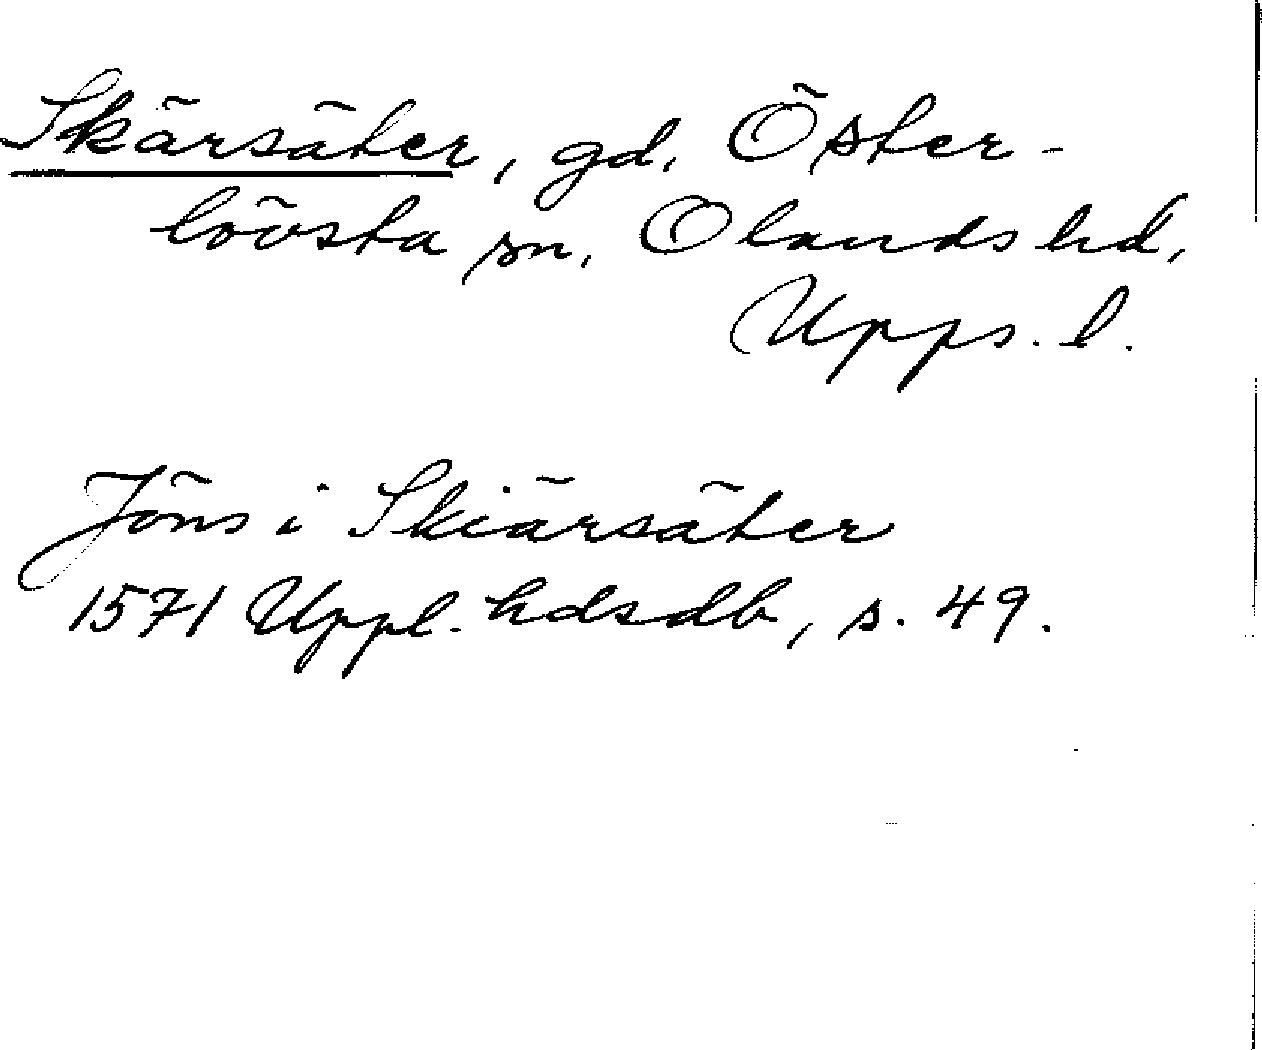 Skärsäter, gd. Öster-
lövsta sn. Olands hd,
Upps. l.
Jöns i Skiärsäter
1571 Uppl. hdsdb, s. 49.